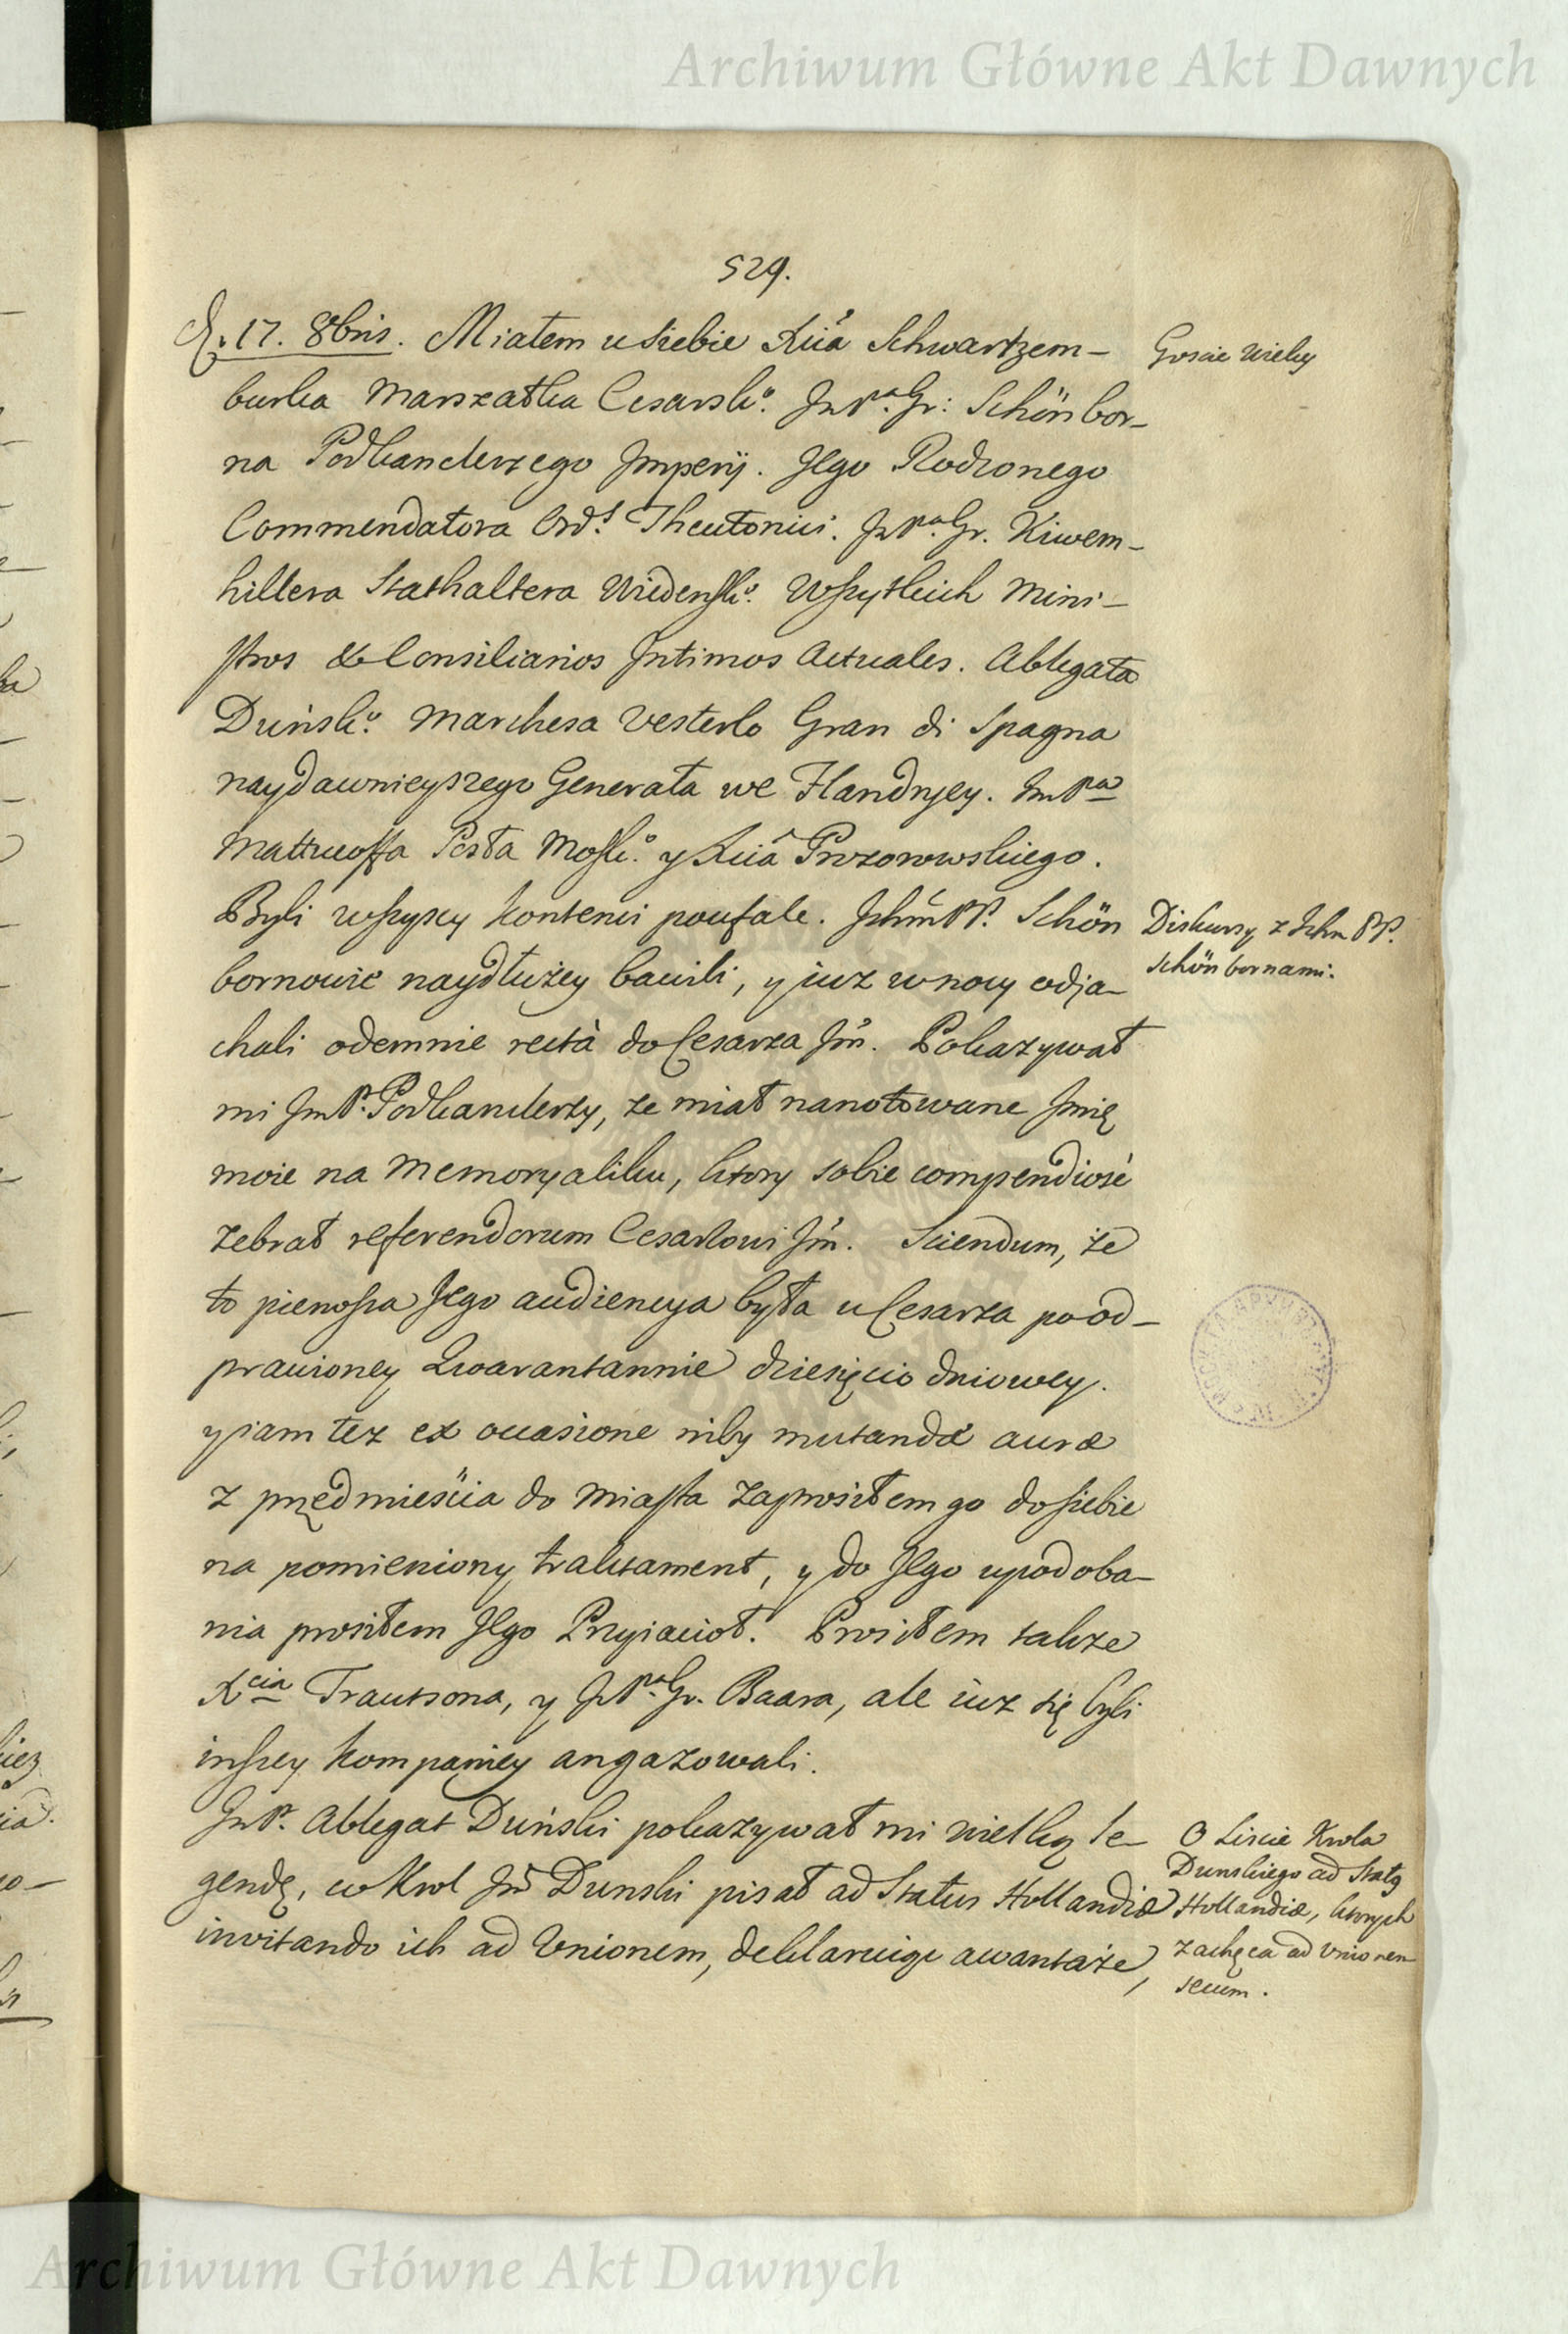 Archiwum Główne Akt Dawnych
529.
D. 17. 8bris. Miałem u siebie Xcia Schwartzem-
burka Marszałka Cesarsko. JmPa. Gr: Schönbor-
na Podkanclerzego Imperij. Jego Rodzonego
Commendatora Ords. Theutonici. JmPa. Gr. Kiwem-
hillera Stathaltera Wideńsko. Wszytkich Mini-
stros & Consiliarios Intimos Actuales. Ablegata
Duńsko. Marchesa Vesterlo Gran di Spagna
naydawnieyszego Generała we Flandryey. JmPa
Mattueoffa Posła Mosko. y Xcia Prozorowskiego.
Byli wszyscy kontenci poufale. Ichm PP. Schön
bornowie naydłużey bawili, y iuz w nocy odja-
chali odemnie rectà do Cesarza Jm. Pokazywał
mi JmP. Podkanclerzy, ze miał nanotowane Jmię
moie na Memoryaliku, ktory sobie compendiosè
zebrał referendorum Cesarzowi Jm. Sciendum, że
to pierwsza Jego audiencya była u Cesarza po od-
prawioney Quarantannie dziesięcio dniowey.
y iam tez ex occasione niby mutandæ auræ
z przedmieścia do Miasta zaprosiłem go do siebie
na pomieniony traktament, y do Jego upodoba-
nia prosiłem Jego Przyiacioł. Prosiłem takze
Xcia Trautsona, y JmPa. Gr. Baara, ale iuz się byli
inszey kompaniey angazowali.
JmP. Ablegat Duński pokazywał mi wielką le-
gendę, co Krol Jm Dunski pisał ad Status Hollandiæ
invitando ich ad Unionem, deklaruiąc awantaże,
Goscie wielcy
Diskursy z Ichm PP.
Schönbornami.
O Liscie Krola
Dunskiego ad Statg
Hollandiæ, ktorych
zachęca ad Unionem
secum.
Archiwum Główne Akt Dawnych